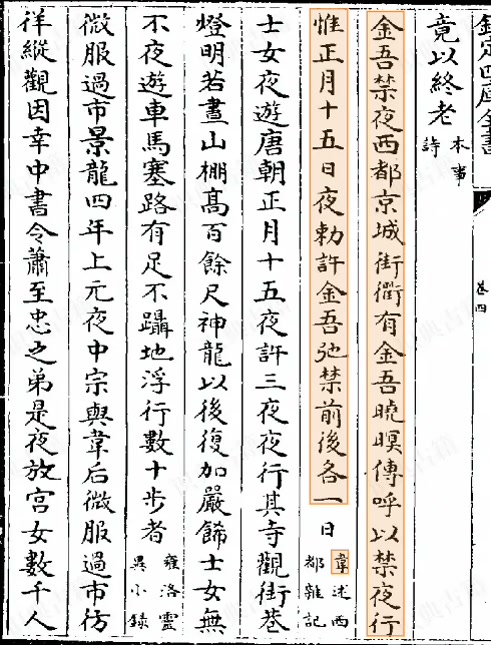 欽定四庫全書
卷四
竟以終老本事詩
金吾禁夜西都京城街衢有金吾曉暝傳呼以禁夜行
惟正月十五日夜勅許金吾弛禁前後各一日韋述西都雜記
士女夜遊唐朝正月十五夜許三夜夜行其寺觀街巷
燈明若晝山棚髙百餘尺神龍以後復加嚴飾士女無
不夜遊車馬塞路有足不躡地浮行數十步者雍洛靈異小録
微服過市景龍四年上元夜中宗與韋后微服過市彷
徉縱觀因幸中書令蕭至忠之弟是夜放宫女數千人